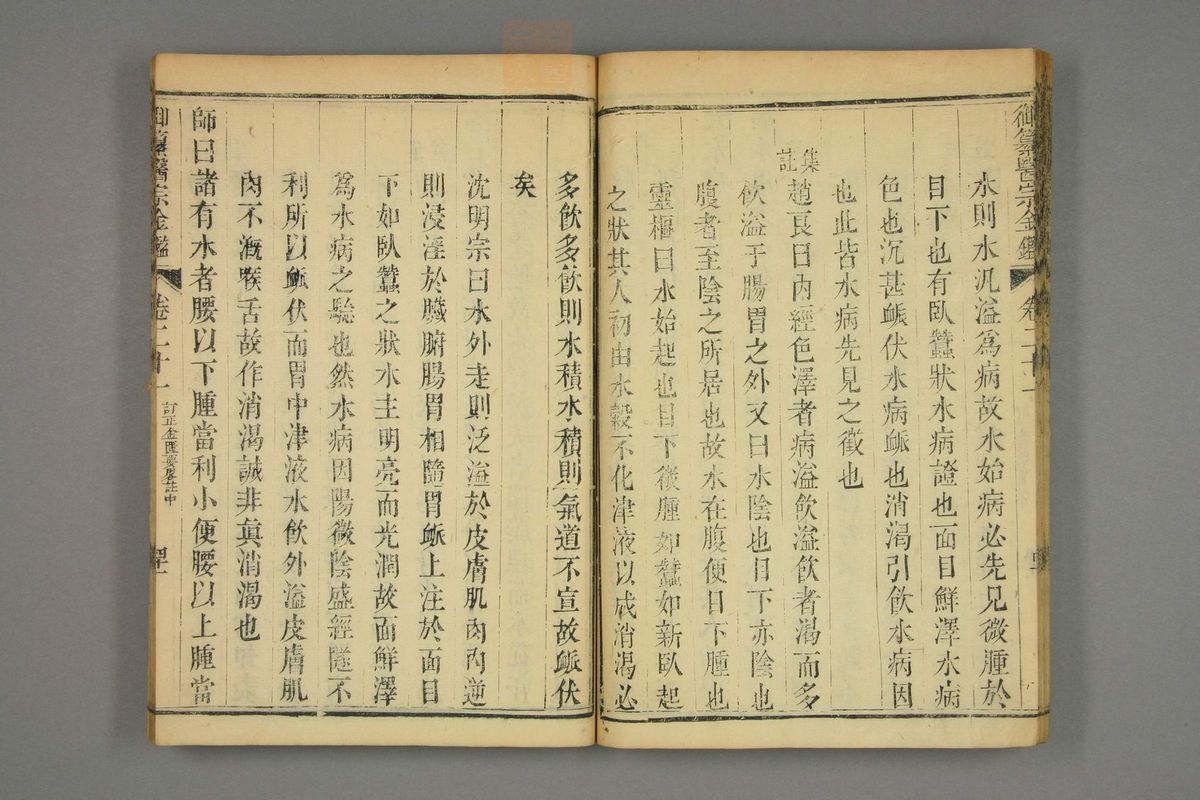 御纂醫宗金鑑 卷二十一
水則水汎溢爲病故水始病必先見微腫於
目下也有臥蠶狀水病證也面目鮮澤水病
色也沉甚䘑伏水病䘑也消渴引飲水病因
也此皆水病先見之徵也
集註
趙良曰内經色澤者病溢飲溢飲者渴而多
飲溢于腸胃之外又曰水陰也目下亦陰也
腹者至陰之所居也故水在腹便目下腫也
靈樞曰水始起也目下微腫如蠶如新臥起
之狀其人初由水穀不化津液以成消渴必
多飲多飲則水積水積則氣道不宣故䘑伏
矣
沈明宗曰水外走則泛溢於皮膚肌肉内逆
則浸淫於臟腑腸胃相隨胃䘑上注於面目
下如臥蠶之狀水主明亮而光潤故面鮮澤
爲水病之驗也然水病因陽微陰盛經隧不
利所以䘑伏而胃中津液水飲外溢皮膚肌
肉不漑喉舌故作消渴誠非眞消渴也
師曰諸有水者腰以下腫當利小便腰以上腫當
御纂醫宗金鑑 卷二十一 訂正金匱要畧註中